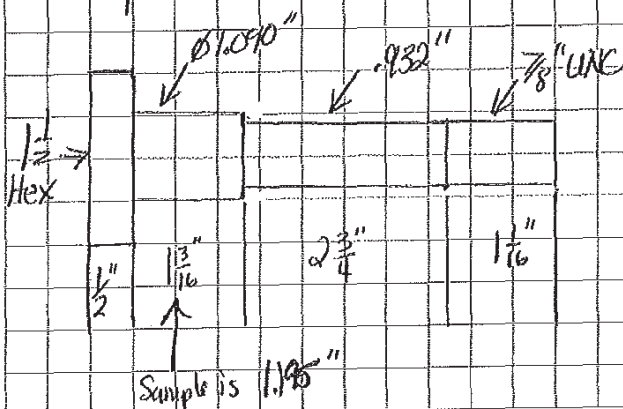 Ø1.090"
.932"
7/8" UNC
1 1/2
Hex
1/2"
1 3/16"
2 3/4"
1 1/16"
Sample is 1.195"